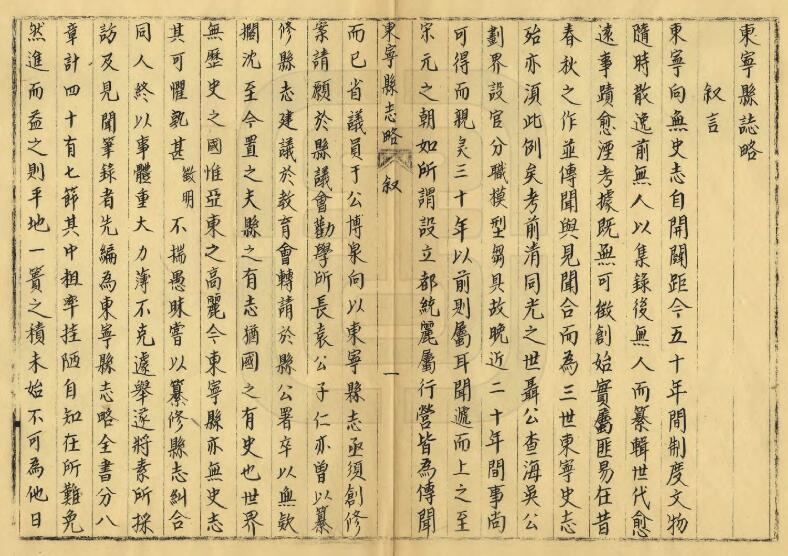 東寧縣誌略
叙言
東寧向無史志自開闢距今五十年間制度文物
隨時散逸前無人以集錄後無人而纂輯世代愈
遠事蹟愈湮考據既無可徵創始實屬匪易在昔
春秋之作並傳聞與見聞合而為三世東寧史志
殆亦須此例矣考前清同光之世聶公查海吳公
劃界設官分職模型芻具故晚近二十年間事尚
可得而親矣三十年以前則屬耳聞遞而上之至
宋元之朝如所謂設立都統麗屬行營皆為傳聞
東寧縣志略 叙 一
而已省議員于公博泉向以東寧縣志亟須創修
案請願於縣議會勸學所長袁公子仁亦曾以纂
修縣志建議於教育會轉請於縣公署卒以無款
擱沈至今置之夫縣之有志猶國之有史也世界
無歷史之國惟亞東之高麗今東寧縣亦無史志
其可懼孰甚徵明不揣愚昧嘗以纂修縣志糾合
同人終以事體重大力薄不克遽舉遂將素所採
訪及見聞筆錄者先編為東寧縣志略全書分八
章計四十有七節其中粗率挂陋自知在所難免
然進而益之則平地一簣之積未始不可為他日